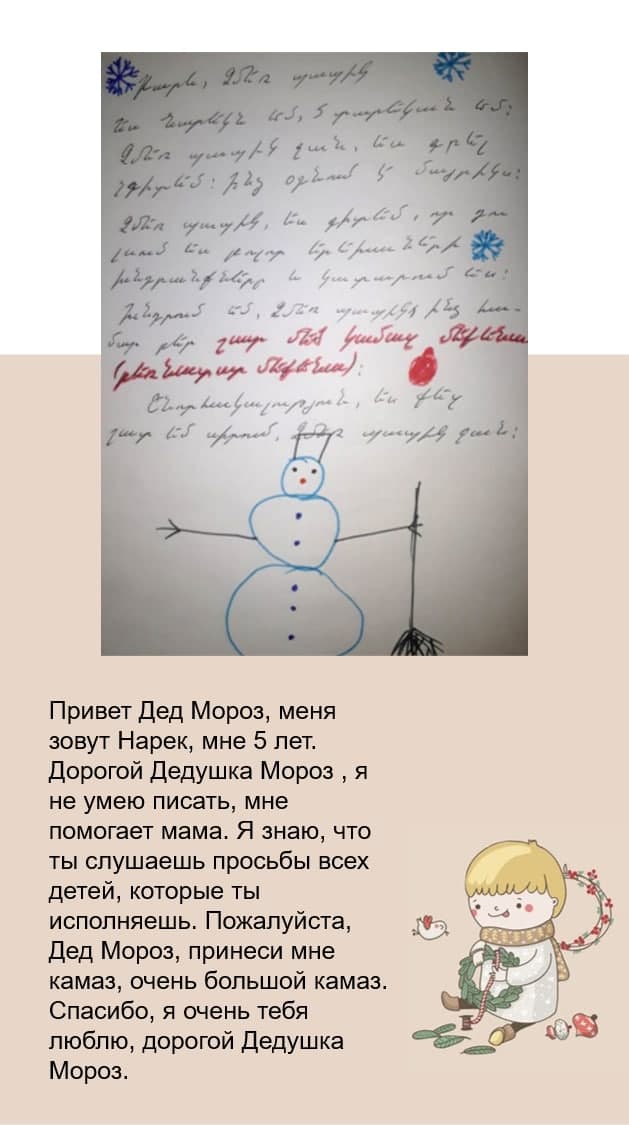 Բարև, Ձմեռ պապիկ
Ես Նարեկն եմ, 5 տարեկան եմ:
Ձմեռ պապիկ ջան, ես գրել
չգիտեմ: Ինձ օգնում է մայրիկս:
Ձմեռ պապիկ, ես գիտեմ, որ դու
լսում ես բոլոր երեխաների
խնդրանքները և կատարում ես:
Խնդրում եմ, Ձմեռ պապիկ ինձ հա-
մար բեր շատ մեծ կամազ մեքենա
(բեռնատար մեքենա):
Շնորհակալություն, ես քեզ
շատ եմ սիրում, Ձմեռ պապիկ ջան:
Привет Дед Мороз, меня
зовут Нарек, мне 5 лет.
Дорогой Дедушка Мороз , я
не умею писать, мне
помогает мама. Я знаю, что
ты слушаешь просьбы всех
детей, которые ты
исполняешь. Пожалуйста,
Дед Мороз, принеси мне
камаз, очень большой камаз.
Спасибо, я очень тебя
люблю, дорогой Дедушка
Мороз.